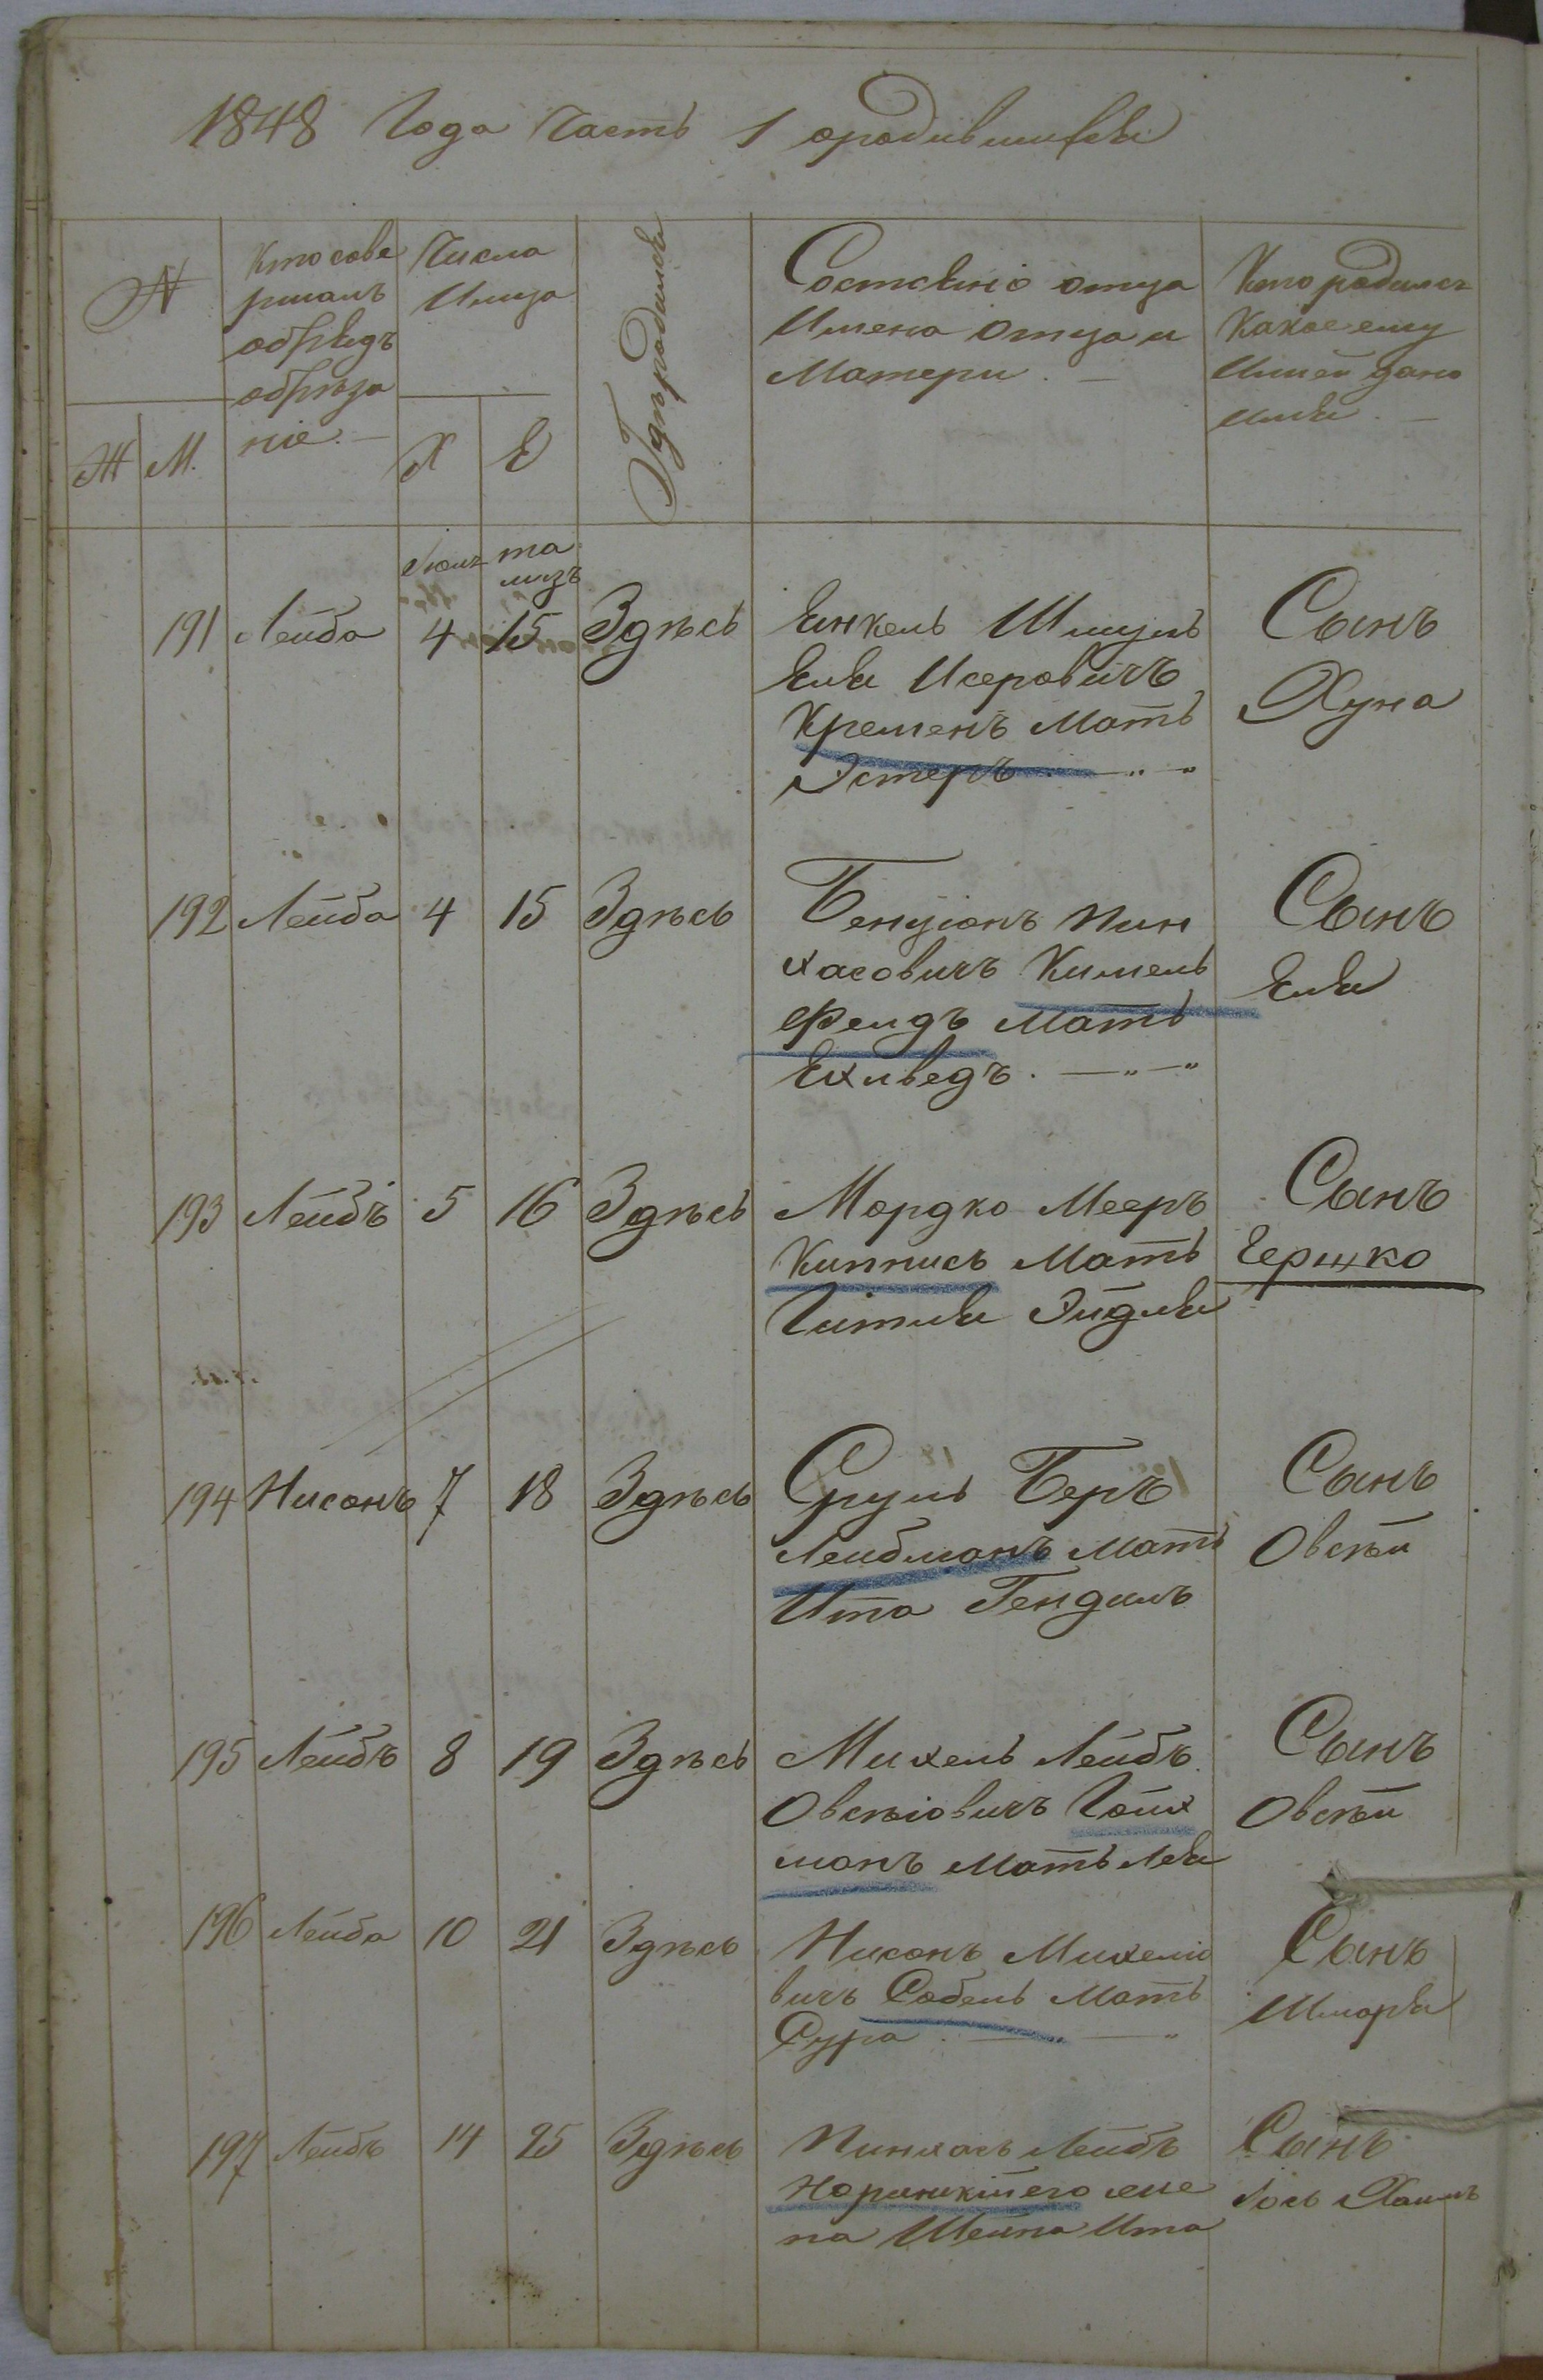 1848 Года Часть 1 ородившихся
№
Кто сове
ршалъ
обрядъ
обрѣза
ніе. —
Числа
Гдѣ родился
Состояніе отца
Имена Отца и
Матери. —
Кто родился
Какое ему
дано
имя. —
Ж М. Х Е
Іюля та
музъ
191 Лейба 4 15 Здѣсь Янкель Шмуль
Еля Исеровичъ
Кременъ Мать
Эстеръ. — „ — „
Сынъ
Хуна
192 Лейба 4 15 Здѣсь Бенціонъ Пин
хасовичъ Кимель
фелдъ Мать
Ехаведъ. — „ — „
Сынъ
Еля
193 Лейбъ 5 16 Здѣсь Мордко Мееръ
Кипнисъ Мать
Гитля Эйдля
Сынъ
Гершко
194 Нисонъ 7 18 Здѣсь Сруль Беръ
Лейбманъ Мать
Ита Гендаль
Сынъ
Овсѣй
195 Лейбъ 8 19 Здѣсь Михель Лейбъ
Овсѣіовичъ Гойх
манъ Мать Лея
Сынъ
Овсѣй
196 Лейба 10 21 Здѣсь Нисонъ Михеліо
вичъ Собель Мать
Сура. — „ — „
Сынъ
Шмаря
197 Лейбъ 14 25 Здѣсь Пинхасъ Лейбъ
его же
на Шейна Ита
Сынъ
Іосъ Хаимъ